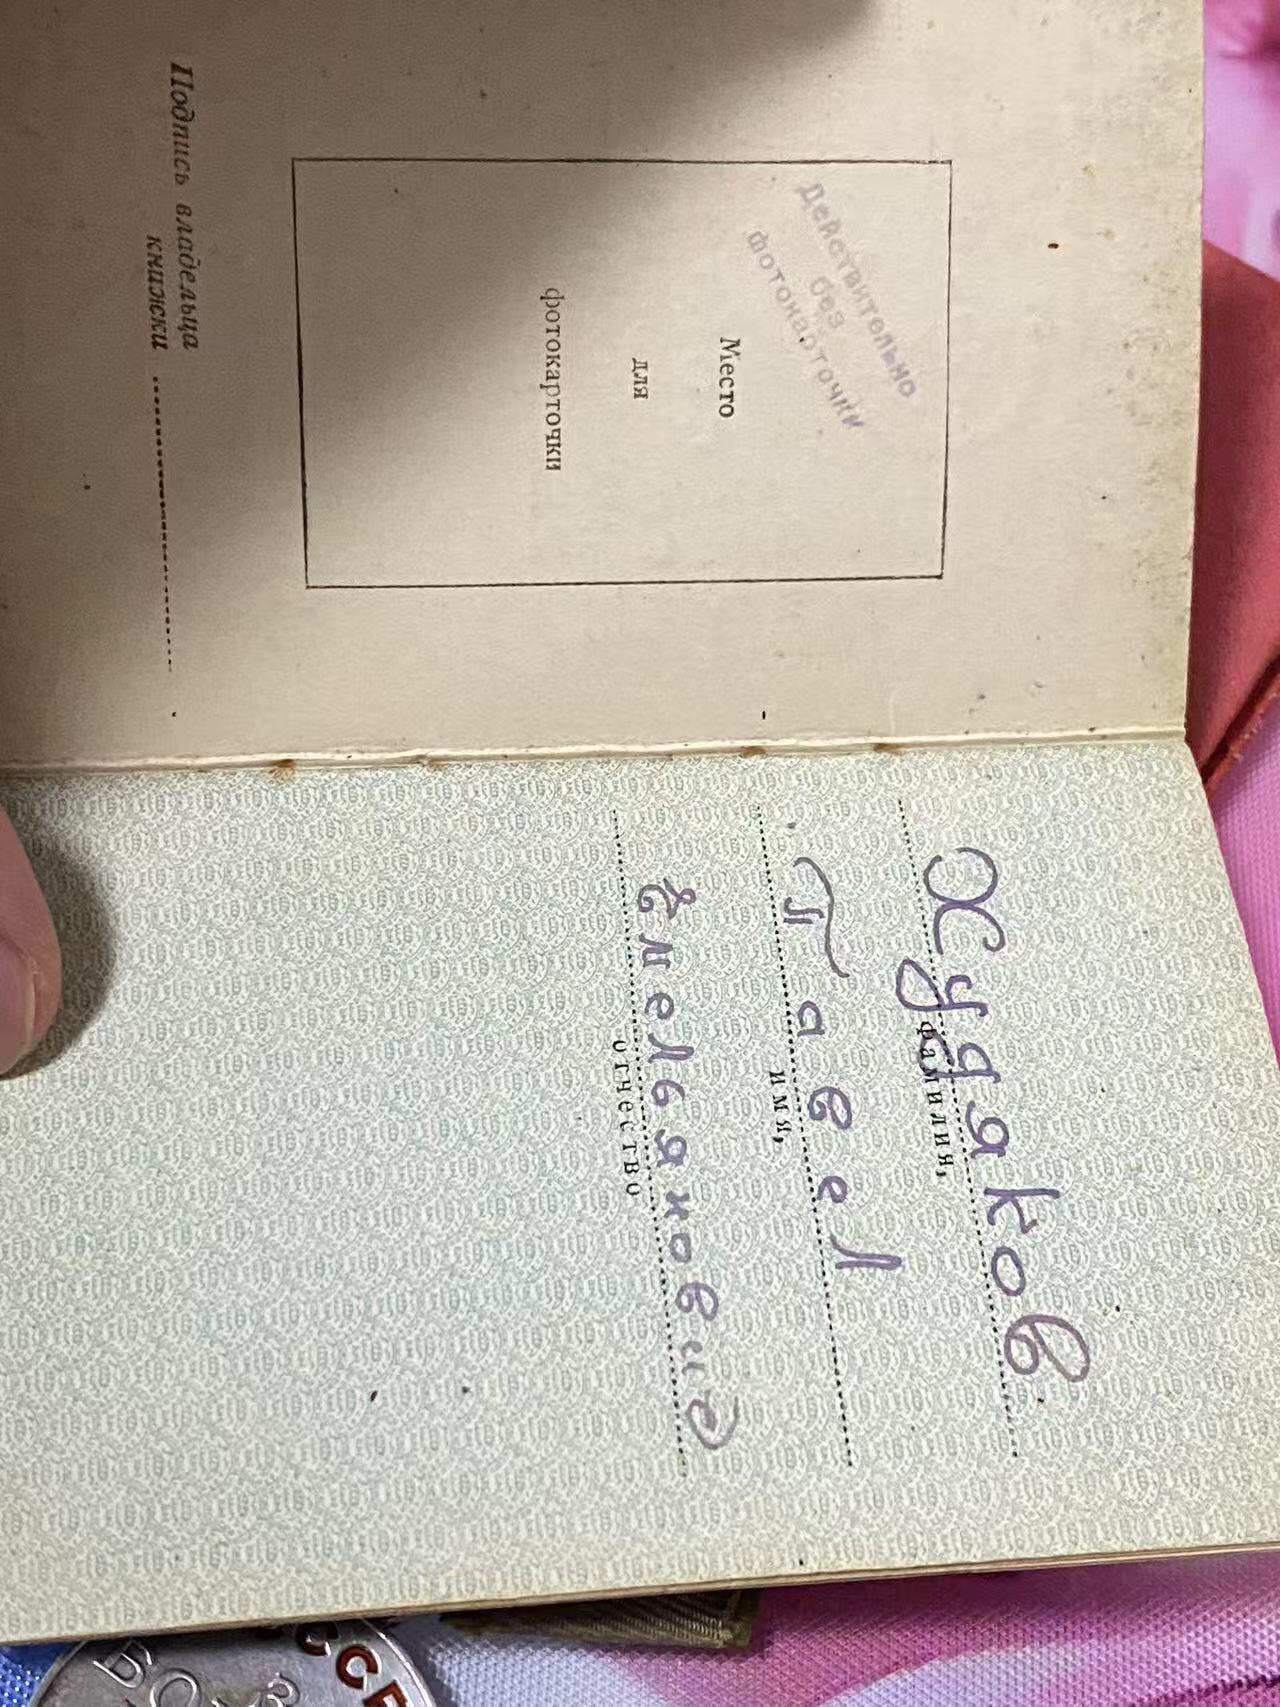 Действительно
без
фотокарточки
Место
для
фотокарточки
Подпись владельца
книжки
Худяков
фамилия,
Павел
имя,
Емельянович
отчество
ССР
БО